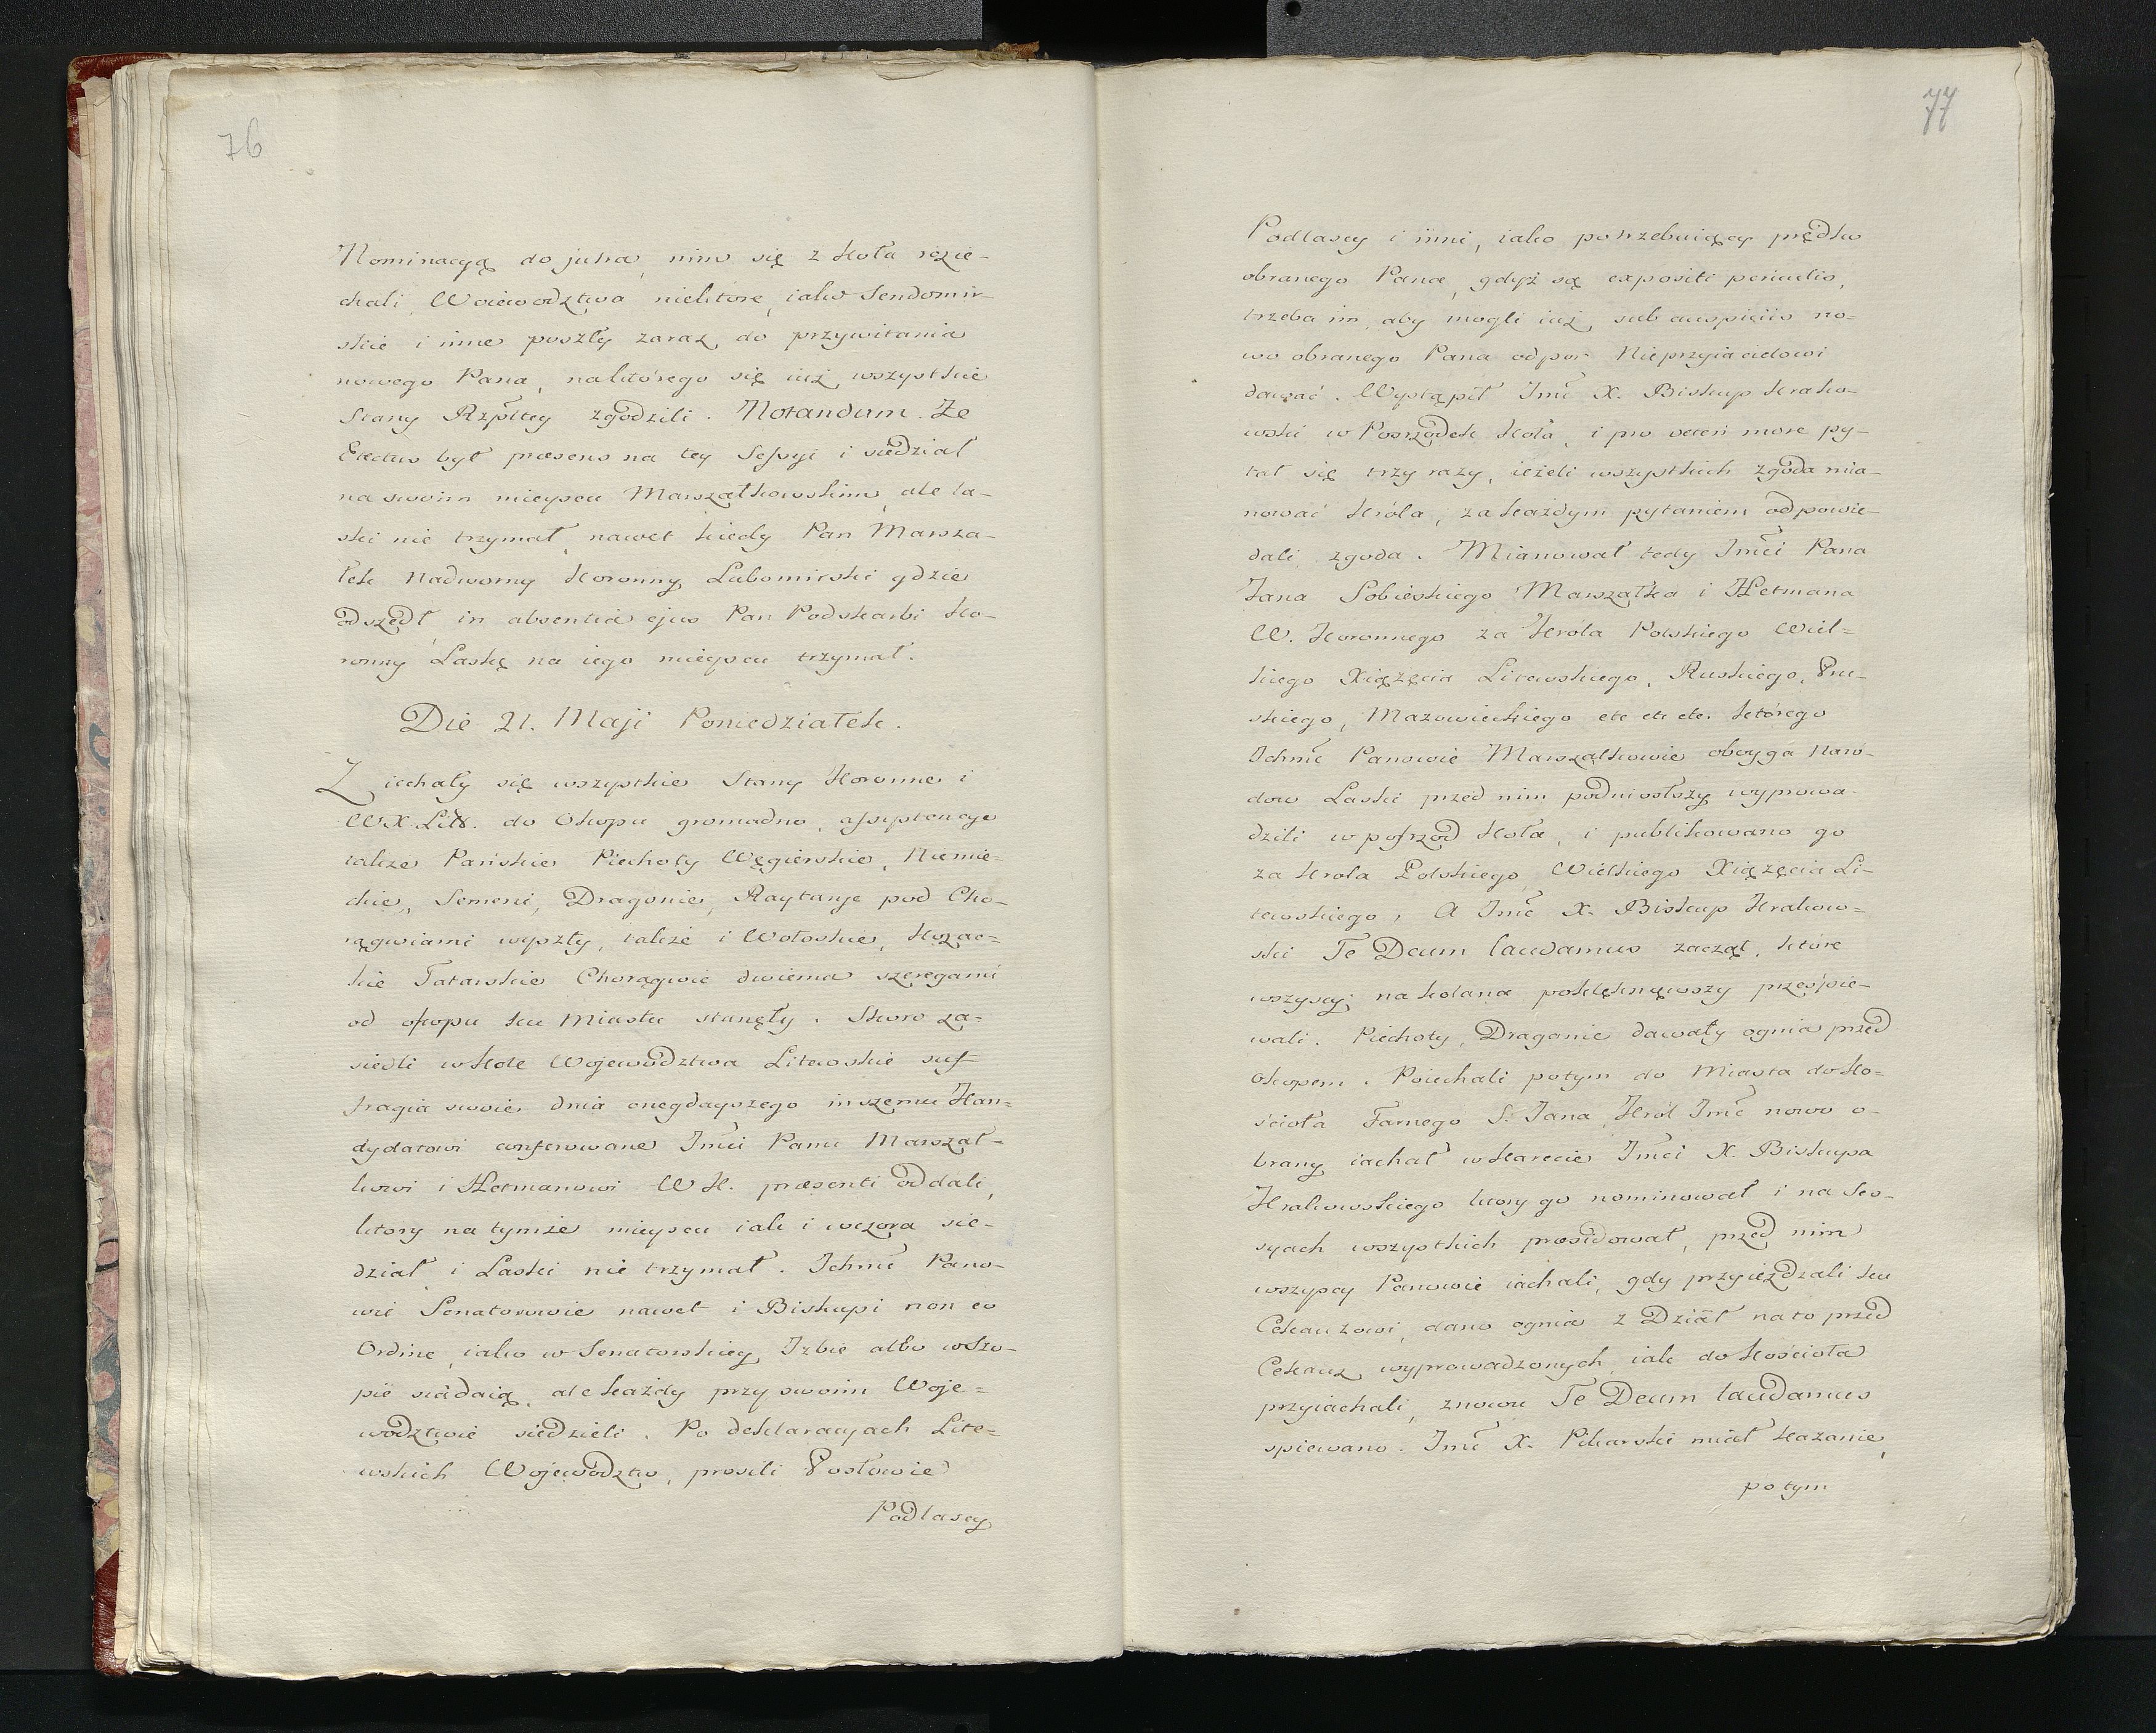 76
Nominacyą do jutra, nim się z Koła rozie-
chali, Woiewodztwa niektore, iako Sendomir-
skie i inne poszły zaraz do przywitania
nowego Pana, na którego się iuż wszystkie
Stany Rzpltey zgodzili. Notandum. Że
Electus był præsens na tey Sessyi i siedział
na swoim mieyscu Marszałkowskim, ale la-
ski nie trzymał, nawet kiedy Pan Marsza-
łek Nadworny Koronny Lubomirski gdzie
odszedł in absentia ejus Pan Podskarbi Ko-
ronny Laskę na iego mieyscu trzymał.
Die 21. Maji Poniedziałek.
Ziechały się wszystkie Stany Koronne i
WX Litt. do Okopu gromadno, assystencye
także Pańskie Piechoty Węgierskie, Niemie-
ckie, Semeni, Dragonie, Raytarye pod Cho-
rągwiami wyszły, także i Wołoskie, Kozac-
kie Tatarskie Chorągwie dwiema szeregami
od okopu ku Miastu stanęły. Skoro za-
siedli w Kole Wojewodztwa Litewskie suf-
fragia swoie dnia onegdayszego inszemu Kan-
dydatowi conferowane Jmci Panu Marszał-
kowi i Hetmanowi W K. præsenti oddali,
ktory na tymże mieyscu iak i wczora sie-
dział i Laski nie trzymał. Ichmć Pano-
wie Senatorowie nawet i Biskupi non eo
Ordine, iako w Senatorskiey Izbie albo w Szo-
pie siadaią, ale każdy przy swoim Woje-
wodztwie siedzieli. Po deklaracyach Lite-
wskich Wojewodztw, prosili Posłowie
Podlascy
77
Podlascy i inni, iako potrzebuiący prędko
obranego Pana, gdyż są expositi periculis,
trzeba im, aby mogli iuż sub auspiciis no-
wo obranego Pana odpor Nieprzyiacielowi
dawać. Wystąpił Jmć X. Biskup Krako-
wski w Posrzodek Koła, i pro veteri more py-
tał się trzy razy, ieżeli wszystkich zgoda mia-
nować Króla, za każdym pytaniem odpowie-
dali zgoda. Mianował tedy Jmći Pana
Jana Sobieskiego Marszałka i Hetmana
W. Koronnego za Krola Polskiego Wiel-
kiego Xiążęcia Litewskiego, Ruskiego, Pru-
skiego, Mazowieckiego etc etc etc. którego
Ichmć Panowie Marszałkowie oboyga Naro-
dow Laski przed nim podniosłszy wyprowa-
dzili w posrzod Koła, i publikowano go
za Krola Polskiego Wielkiego Xiążęcia Li-
tewskiego, A Jmć X. Biskup Krakow-
ski Te Deum laudamus zaczął, które
wszyscy na kolana poklęknąwszy prześpie-
wali. Piechoty, Dragonie dawały ognia przed
Okopem. Poiechali potym do Miasta do Ko-
ścioła Farnego S. Jana, Król Jmć nowo o-
brany iachał w Karecie Jmći X. Biskupa
Krakowskiego ktory go nominował i na Ses-
syach wszystkich præsidował, przed nim
wszyscy Panowie iachali, gdy przyieżdzali ku
Cekauzowi, dano ognia z Dział na to przed
Cekauz wyprowadzonych iak do Kościoła
przyiachali, znowu Te Deum laudamus
spiewano. Jmć X. Pikarski miał Kazanie,
potym